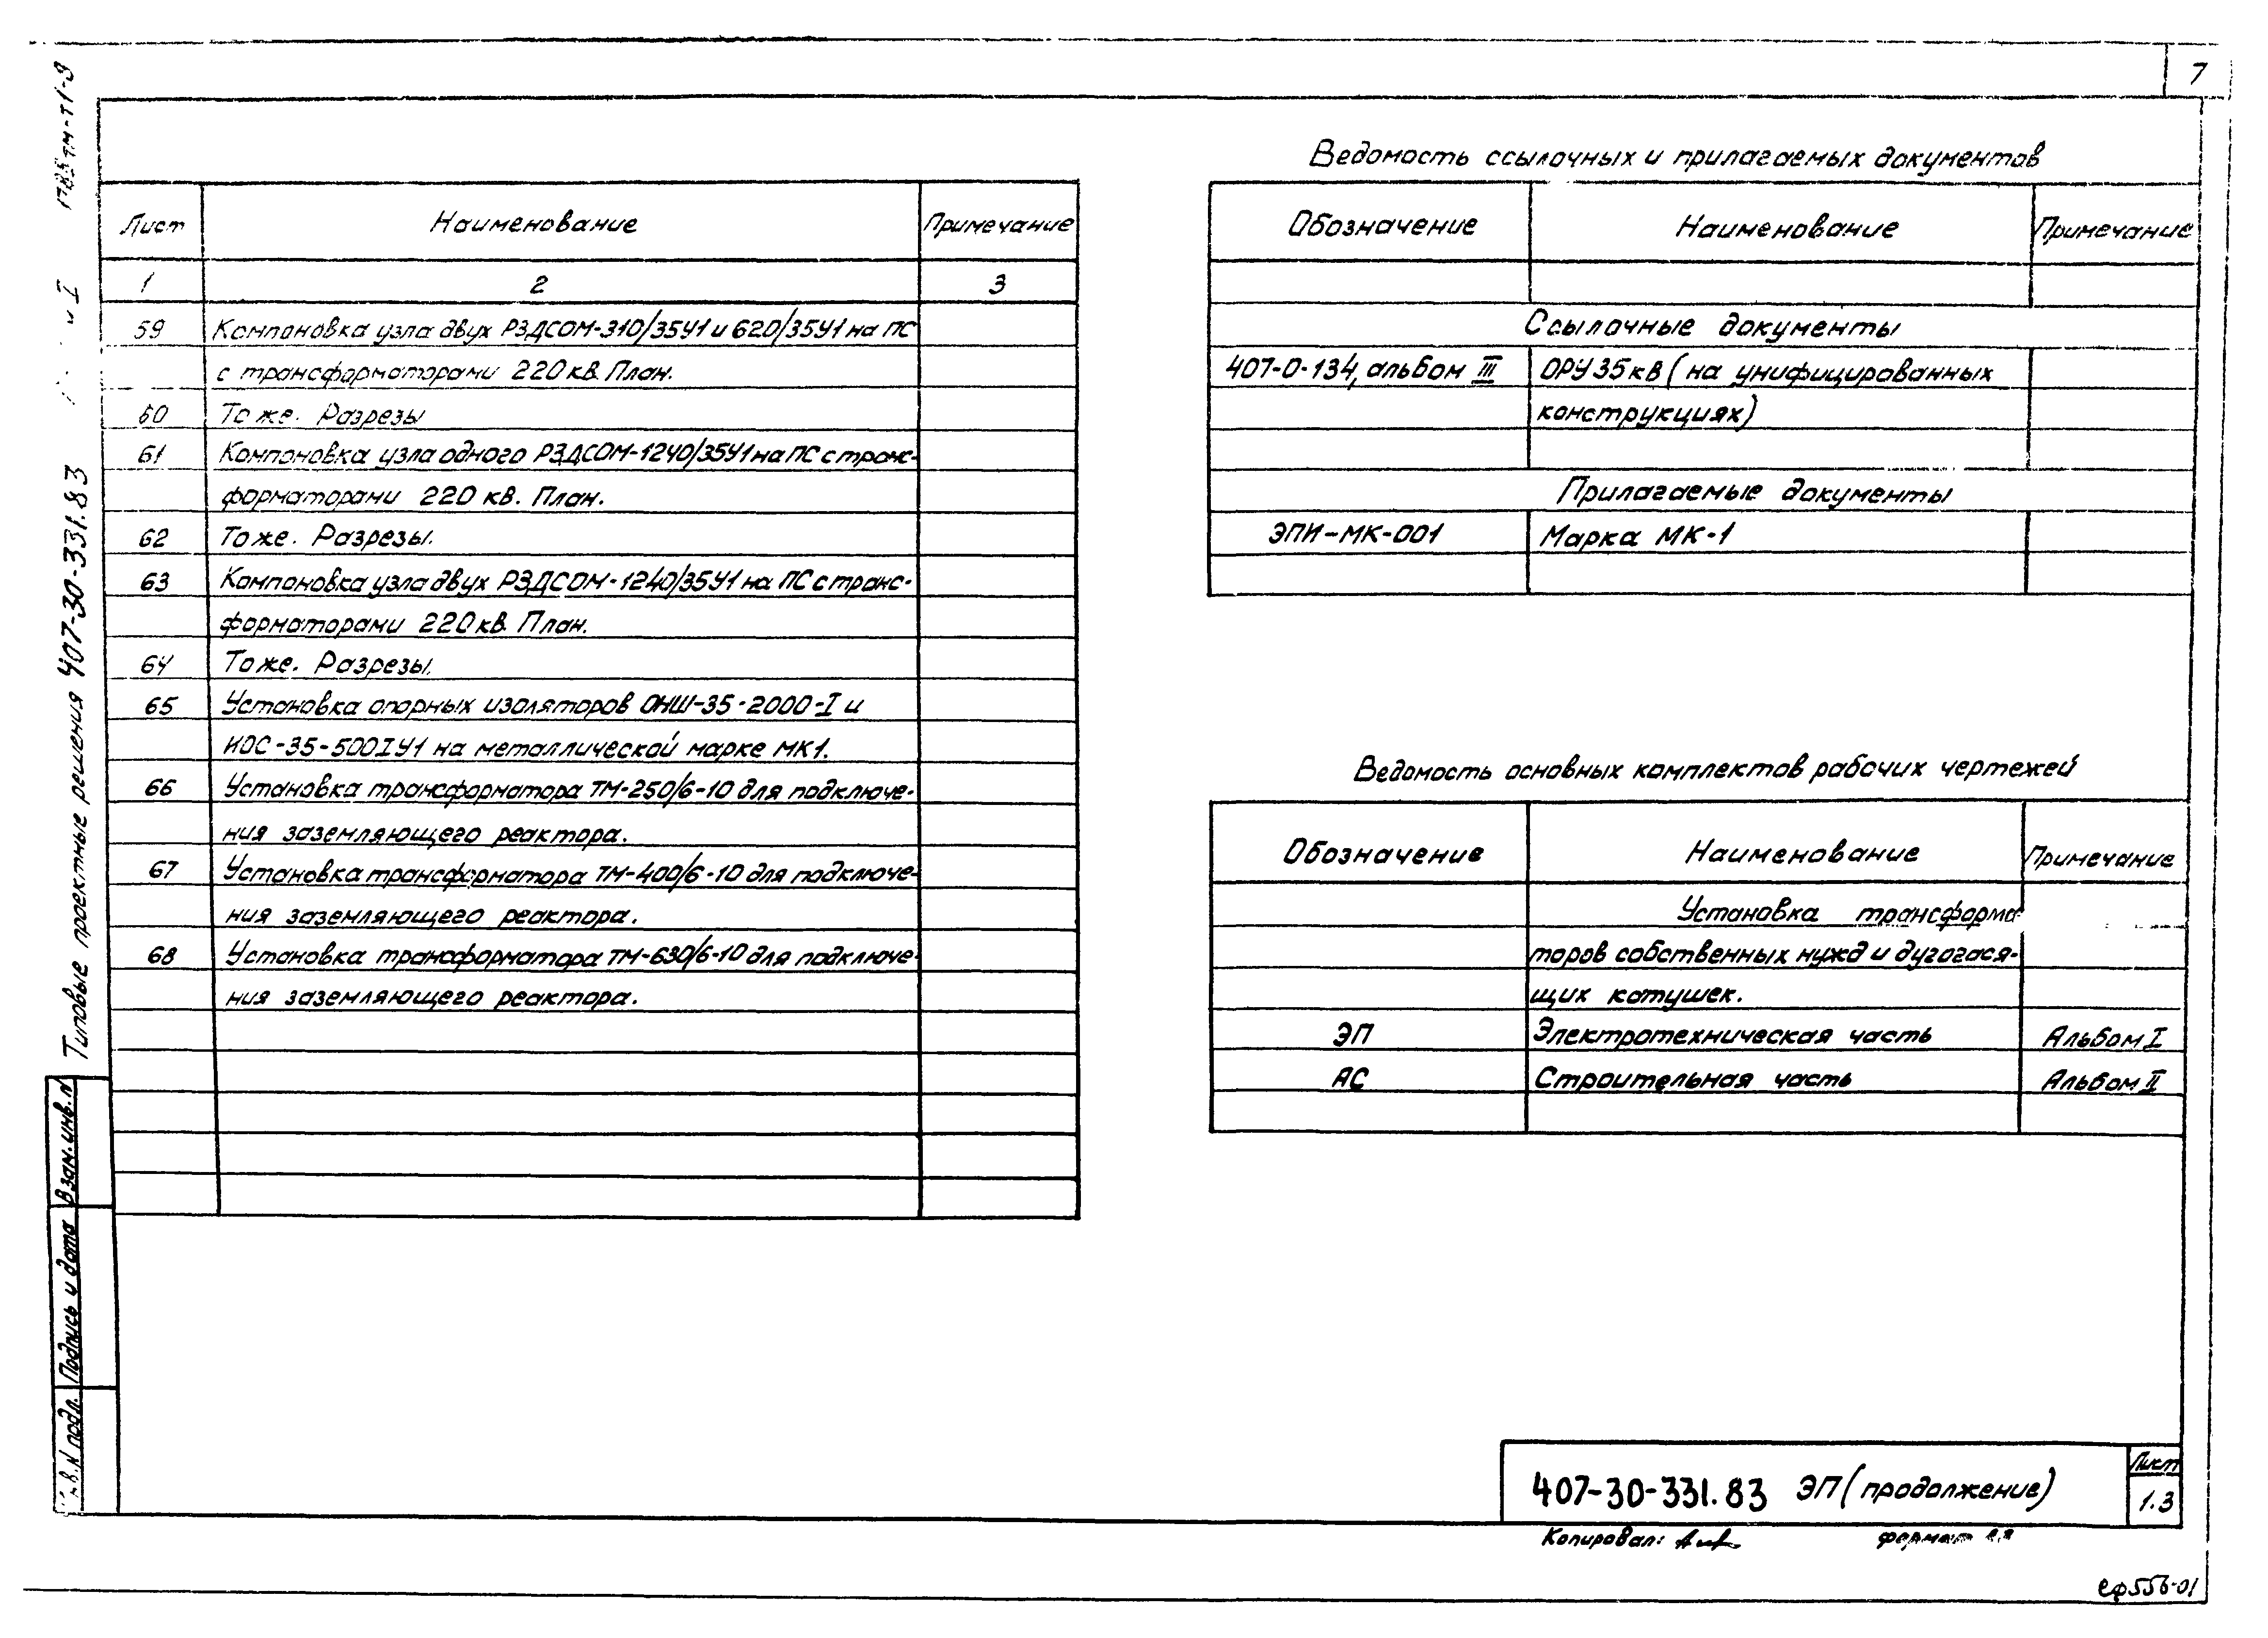 7
Лист Наименование Примечание
1 2 3
59 Компоновка узла двух РЗДСОМ-310/35У1 и 620/35У1 на ПС
с трансформаторами 220 кв. План.
60 То же. Разрезы
61 Компоновка узла одного РЗДСОМ-1240/35У1 на ПС с транс-
форматорами 220 кв. План.
62 То же. Разрезы.
63 Компоновка узла двух РЗДСОМ-1240/35У1 на ПС с транс-
форматорами 220 кв. План.
64 То же. Разрезы.
65 Установка опорных изоляторов ОНШ-35-2000-I и
ИОС-35-500IУ1 на металлической марке МК1.
66 Установка трансформатора ТМ-250/6-10 для подключе-
ния заземляющего реактора.
67 Установка трансформатора ТМ-400/6-10 для подключе-
ния заземляющего реактора.
68 Установка трансформатора ТМ-630/6-10 для подключе-
ния заземляющего реактора.
Ведомость ссылочных и прилагаемых документов
Обозначение Наименование Примечание
Ссылочные документы
407-0-134, альбом III ОРУ 35 кВ (на унифицированных
конструкциях)
Прилагаемые документы
ЭПИ-МК-001 Марка МК-1
Ведомость основных комплектов рабочих чертежей
Обозначение Наименование Примечание
Установка трансформа
торов собственных нужд и дугогася-
щих катушек.
ЭП Электротехническая часть Альбом I
АС Строительная часть Альбом II
Типовые проектные решения 407-30-331.83
I
Взам. инв. N
Подпись и дата
Инв. N подл.
407-30-331.83 ЭП (продолжение)
Лист
1.3
Копировал: формат
сф556-01